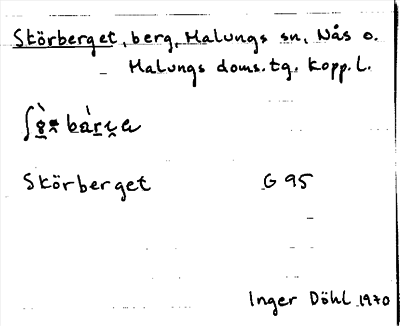 Skörberget, berg, Malungs sn, Nås o.
Malungs doms. tg. Kopp. l.
Skörberget G 95
Inger Döhl 1970